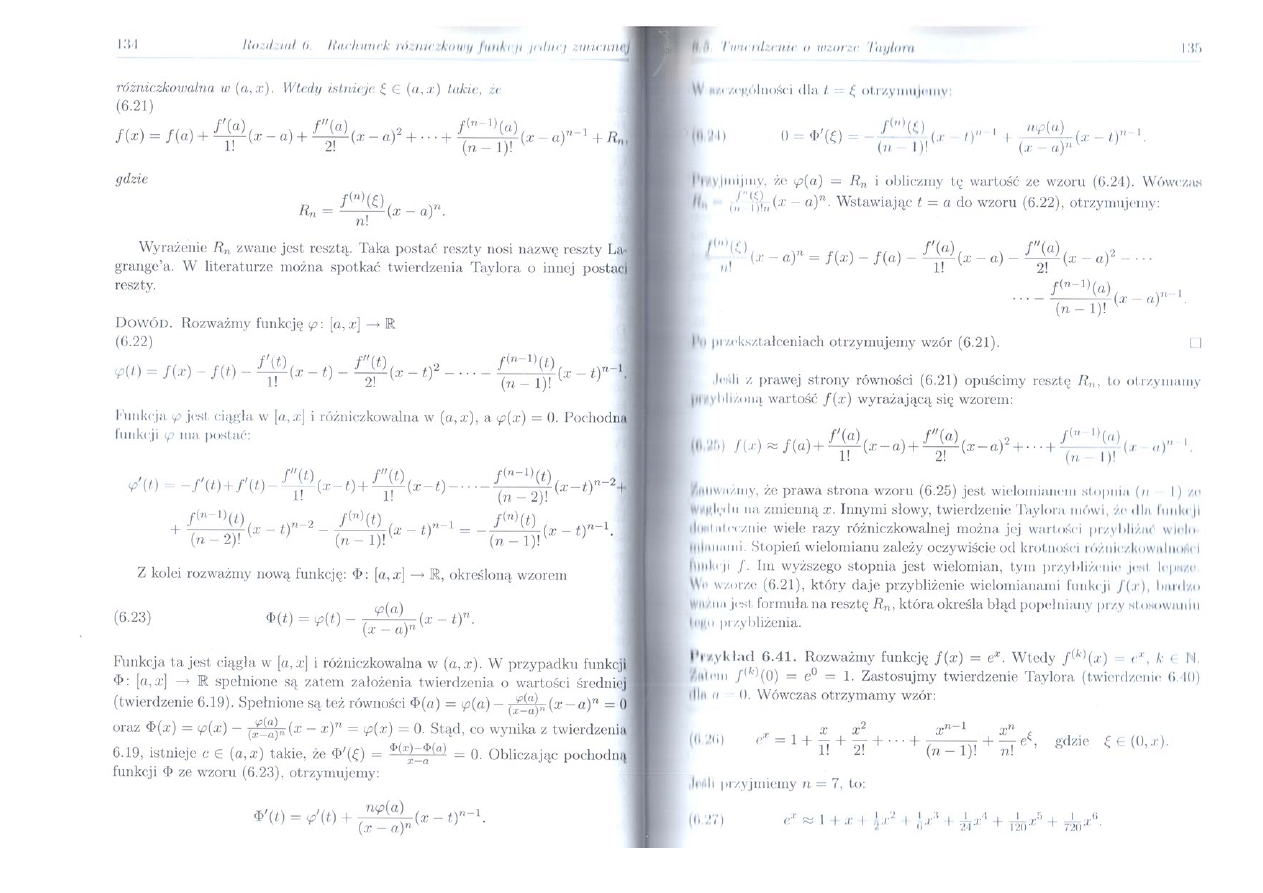 134 Rozdział 6. Rachunek różniczkowy funkcji jednej zmiennej
różniczkowalna w (a, x). Wtedy istnieje ξ ∈ (a, x) takie, że
(6.21)
f(x) = f(a) + f'(a)/1! (x − a) + f''(a)/2! (x − a)² + ··· + f⁽ⁿ⁻¹⁾(a)/(n − 1)! (x − a)ⁿ⁻¹ + Rₙ,
gdzie
Rₙ = f⁽ⁿ⁾(ξ)/n! (x − a)ⁿ.
Wyrażenie Rₙ zwane jest resztą. Taka postać reszty nosi nazwę reszty La-
grange'a. W literaturze można spotkać twierdzenia Taylora o innej postaci
reszty.
DOWÓD. Rozważmy funkcję φ: [a, x] → ℝ
(6.22)
φ(t) = f(x) − f(t) − f'(t)/1! (x − t) − f''(t)/2! (x − t)² − ··· − f⁽ⁿ⁻¹⁾(t)/(n − 1)! (x − t)ⁿ⁻¹.
Funkcja φ jest ciągła w [a, x] i różniczkowalna w (a, x), a φ(x) = 0. Pochodna
funkcji φ ma postać:
φ'(t) = −f'(t)+f'(t)− f''(t)/1! (x−t)+ f''(t)/1! (x−t)−···− f⁽ⁿ⁻¹⁾(t)/(n − 2)! (x−t)ⁿ⁻²+
+ f⁽ⁿ⁻¹⁾(t)/(n − 2)! (x − t)ⁿ⁻² − f⁽ⁿ⁾(t)/(n − 1)! (x − t)ⁿ⁻¹ = − f⁽ⁿ⁾(t)/(n − 1)! (x − t)ⁿ⁻¹.
Z kolei rozważmy nową funkcję: Φ: [a, x] → ℝ, określoną wzorem
(6.23) Φ(t) = φ(t) − φ(a)/(x − a)ⁿ (x − t)ⁿ.
Funkcja ta jest ciągła w [a, x] i różniczkowalna w (a, x). W przypadku funkcji
Φ: [a, x] → ℝ spełnione są zatem założenia twierdzenia o wartości średniej
(twierdzenie 6.19). Spełnione są też równości Φ(a) = φ(a) − φ(a)/(x−a)ⁿ (x − a)ⁿ = 0
oraz Φ(x) = φ(x) − φ(a)/(x−a)ⁿ (x − x)ⁿ = φ(x) = 0. Stąd, co wynika z twierdzenia
6.19, istnieje c ∈ (a, x) takie, że Φ'(ξ) = Φ(x)−Φ(a)/x−a = 0. Obliczając pochodną
funkcji Φ ze wzoru (6.23), otrzymujemy:
Φ'(t) = φ'(t) + nφ(a)/(x − a)ⁿ (x − t)ⁿ⁻¹.
6.5. Twierdzenie o wzorze Taylora 135
W szczególności dla t = ξ otrzymujemy:
(6.24) 0 = Φ'(ξ) = − f⁽ⁿ⁾(ξ)/(n − 1)! (x − t)ⁿ⁻¹ + nφ(a)/(x − a)ⁿ (x − t)ⁿ⁻¹.
Przyjmijmy, że φ(a) = Rₙ i obliczmy tę wartość ze wzoru (6.24). Wówczas
Rₙ = fⁿ(ξ)/(n−1)!n (x − a)ⁿ. Wstawiając t = a do wzoru (6.22), otrzymujemy:
f⁽ⁿ⁾(ξ)/n! (x − a)ⁿ = f(x) − f(a) − f'(a)/1! (x − a) − f''(a)/2! (x − a)² − ···
··· − f⁽ⁿ⁻¹⁾(a)/(n − 1)! (x − a)ⁿ⁻¹.
Po przekształceniach otrzymujemy wzór (6.21). □
Jeśli z prawej strony równości (6.21) opuścimy resztę Rₙ, to otrzymamy
przybliżoną wartość f(x) wyrażającą się wzorem:
(6.25) f(x) ≈ f(a)+ f'(a)/1! (x−a)+ f''(a)/2! (x−a)²+···+ f⁽ⁿ⁻¹⁾(a)/(n − 1)! (x − a)ⁿ⁻¹.
Zauważmy, że prawa strona wzoru (6.25) jest wielomianem stopnia (n − 1) ze
względu na zmienną x. Innymi słowy, twierdzenie Taylora mówi, że dla funkcji
dostatecznie wiele razy różniczkowalnej można jej wartości przybliżać wielo-
mianami. Stopień wielomianu zależy oczywiście od krotności różniczkowalności
funkcji f. Im wyższego stopnia jest wielomian, tym przybliżenie jest lepsze.
We wzorze (6.21), który daje przybliżenie wielomianami funkcji f(x), bardzo
ważna jest formuła na resztę Rₙ, która określa błąd popełniany przy stosowaniu
tego przybliżenia.
Przykład 6.41. Rozważmy funkcję f(x) = eˣ. Wtedy f⁽ᵏ⁾(x) = eˣ, k ∈ ℕ.
Zatem f⁽ᵏ⁾(0) = e⁰ = 1. Zastosujmy twierdzenie Taylora (twierdzenie 6.40)
dla a = 0. Wówczas otrzymamy wzór:
(6.26) eˣ = 1 + x/1! + x²/2! + ··· + xⁿ⁻¹/(n − 1)! + xⁿ/n! e^ξ, gdzie ξ ∈ (0, x).
Jeśli przyjmiemy n = 7, to:
(6.27) eˣ ≈ 1 + x + 1/2 x² + 1/6 x³ + 1/24 x⁴ + 1/120 x⁵ + 1/720 x⁶.